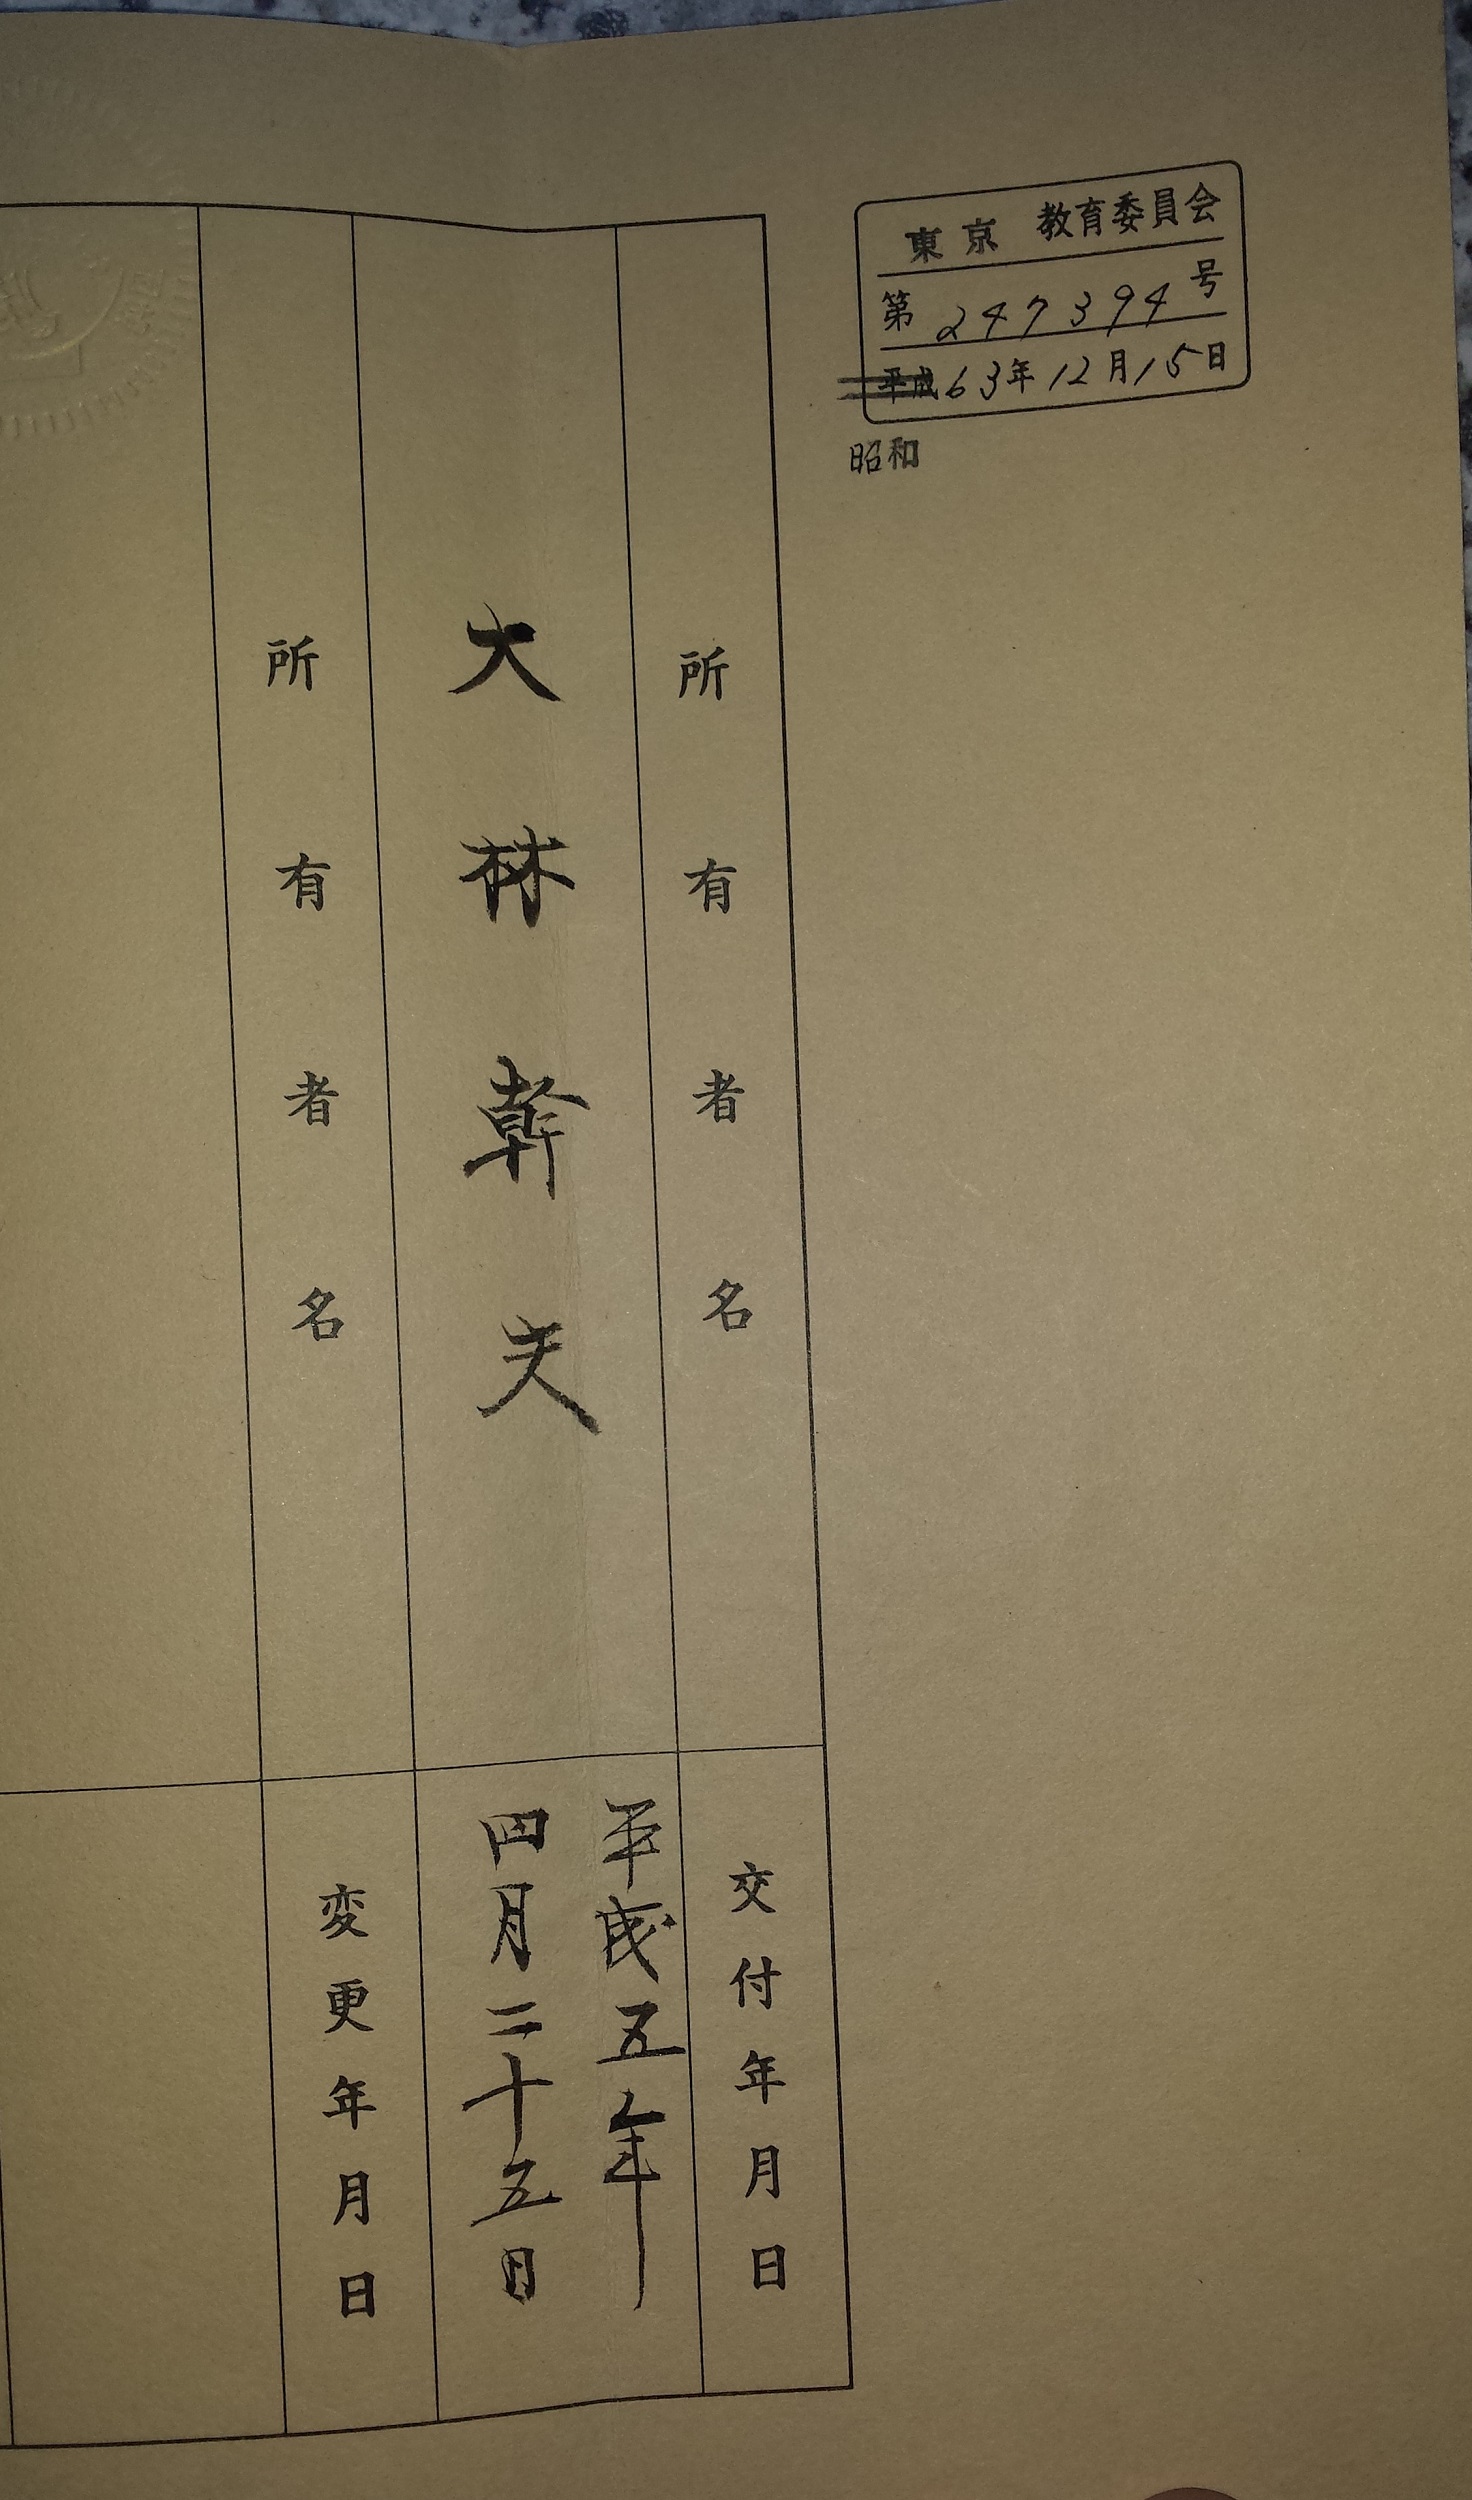 東京 教育委員会
第 247394 号
平成63年12月15日
昭和
所有者名
交付年月日
大林幹夫
平成五年
四月二十五日
所有者名
変更年月日